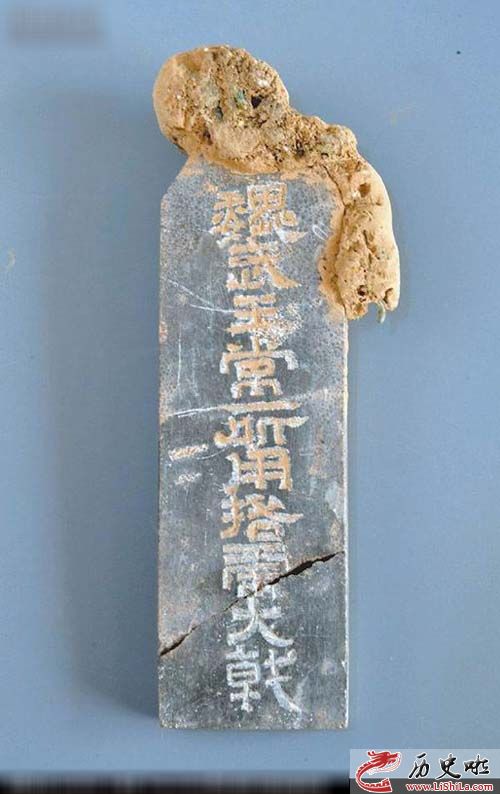 魏武王常所用挌虎大戟
历史啦
www.LiShiLa.com